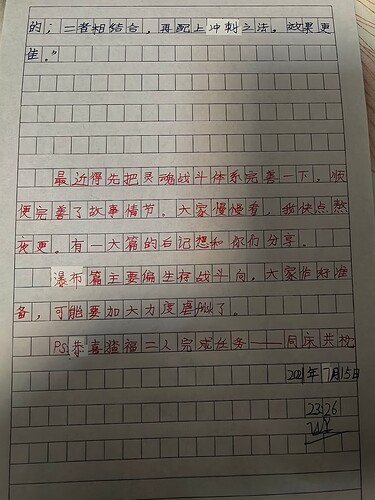 的；二者相结合，再配上冲刺之法。效果更
佳。”
最近得先把灵魂战斗体系完善一下，顺
便完善了故事情节。大家慢慢看，我快点熬
夜更。有一大篇的后记想和你们分享。
瀑布篇主要偏生存战斗向。大家作好准
备，可能要加大力度虐 了。
PS：恭喜猪福二人完成任务——同床共枕
2021年7月15日
23:26